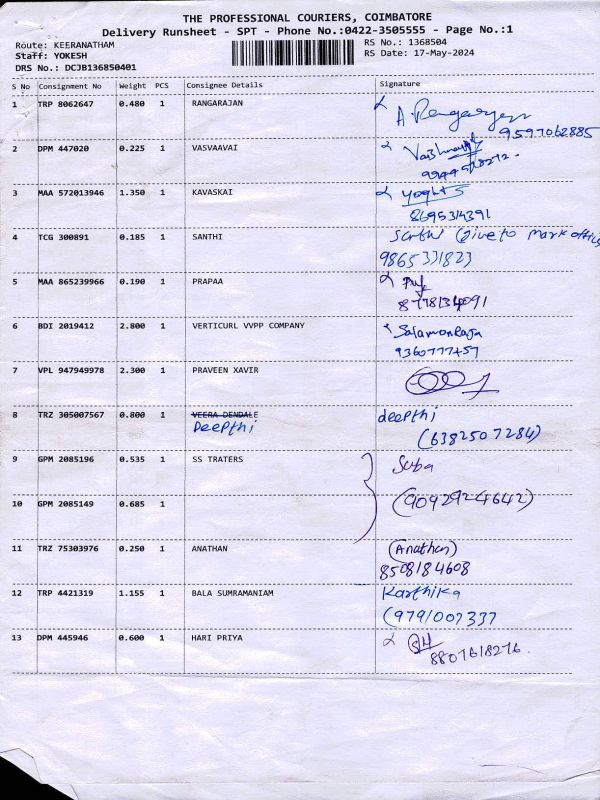 THE PROFESSIONAL COURIERS, COIMBATORE
Delivery Runsheet - SPT - Phone No.:0422-3505555 - Page No.:1
Route: KEERANATHAM
RS No.: 1368504
Staff: YOKESH
RS Date: 17-May-2024
DRS No.: DCJB136850401
S No Consignment No Weight PCS Consignee Details Signature
1 TRP 8062647 0.480 1 RANGARAJAN
9597062885
2 DPM 447020 0.225 1 VASVAAVAI
3 MAA 572013946 1.350 1 KAVASKAI
8695314391
4 TCG 300891 0.185 1 SANTHI Santhi (Give to Mark office
9865331823
5 MAA 865239966 0.190 1 PRAPAA
8778134091
6 BDI 2019412 2.800 1 VERTICURL VVPP COMPANY Salamonraja
9360777457
7 VPL 947949978 2.300 1 PRAVEEN XAVIR
8 TRZ 305007567 0.800 1 VEERA DENDALE deepthi
Deepthi (6382507284)
9 GPM 2085196 0.535 1 SS TRATERS Suba
(9092924642)
10 GPM 2085149 0.685 1
11 TRZ 75303976 0.250 1 ANATHAN (Anathan)
8508184608
12 TRP 4421319 1.155 1 BALA SUMRAMANIAM Karthika
(9791007337
13 DPM 445946 0.600 1 HARI PRIYA
8807618276.